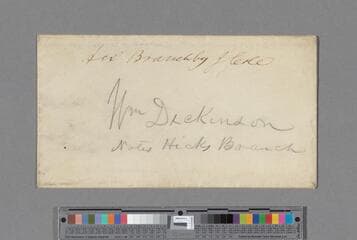 Branch by J Cole
Wm Dickinson
Notes Hicks Branch